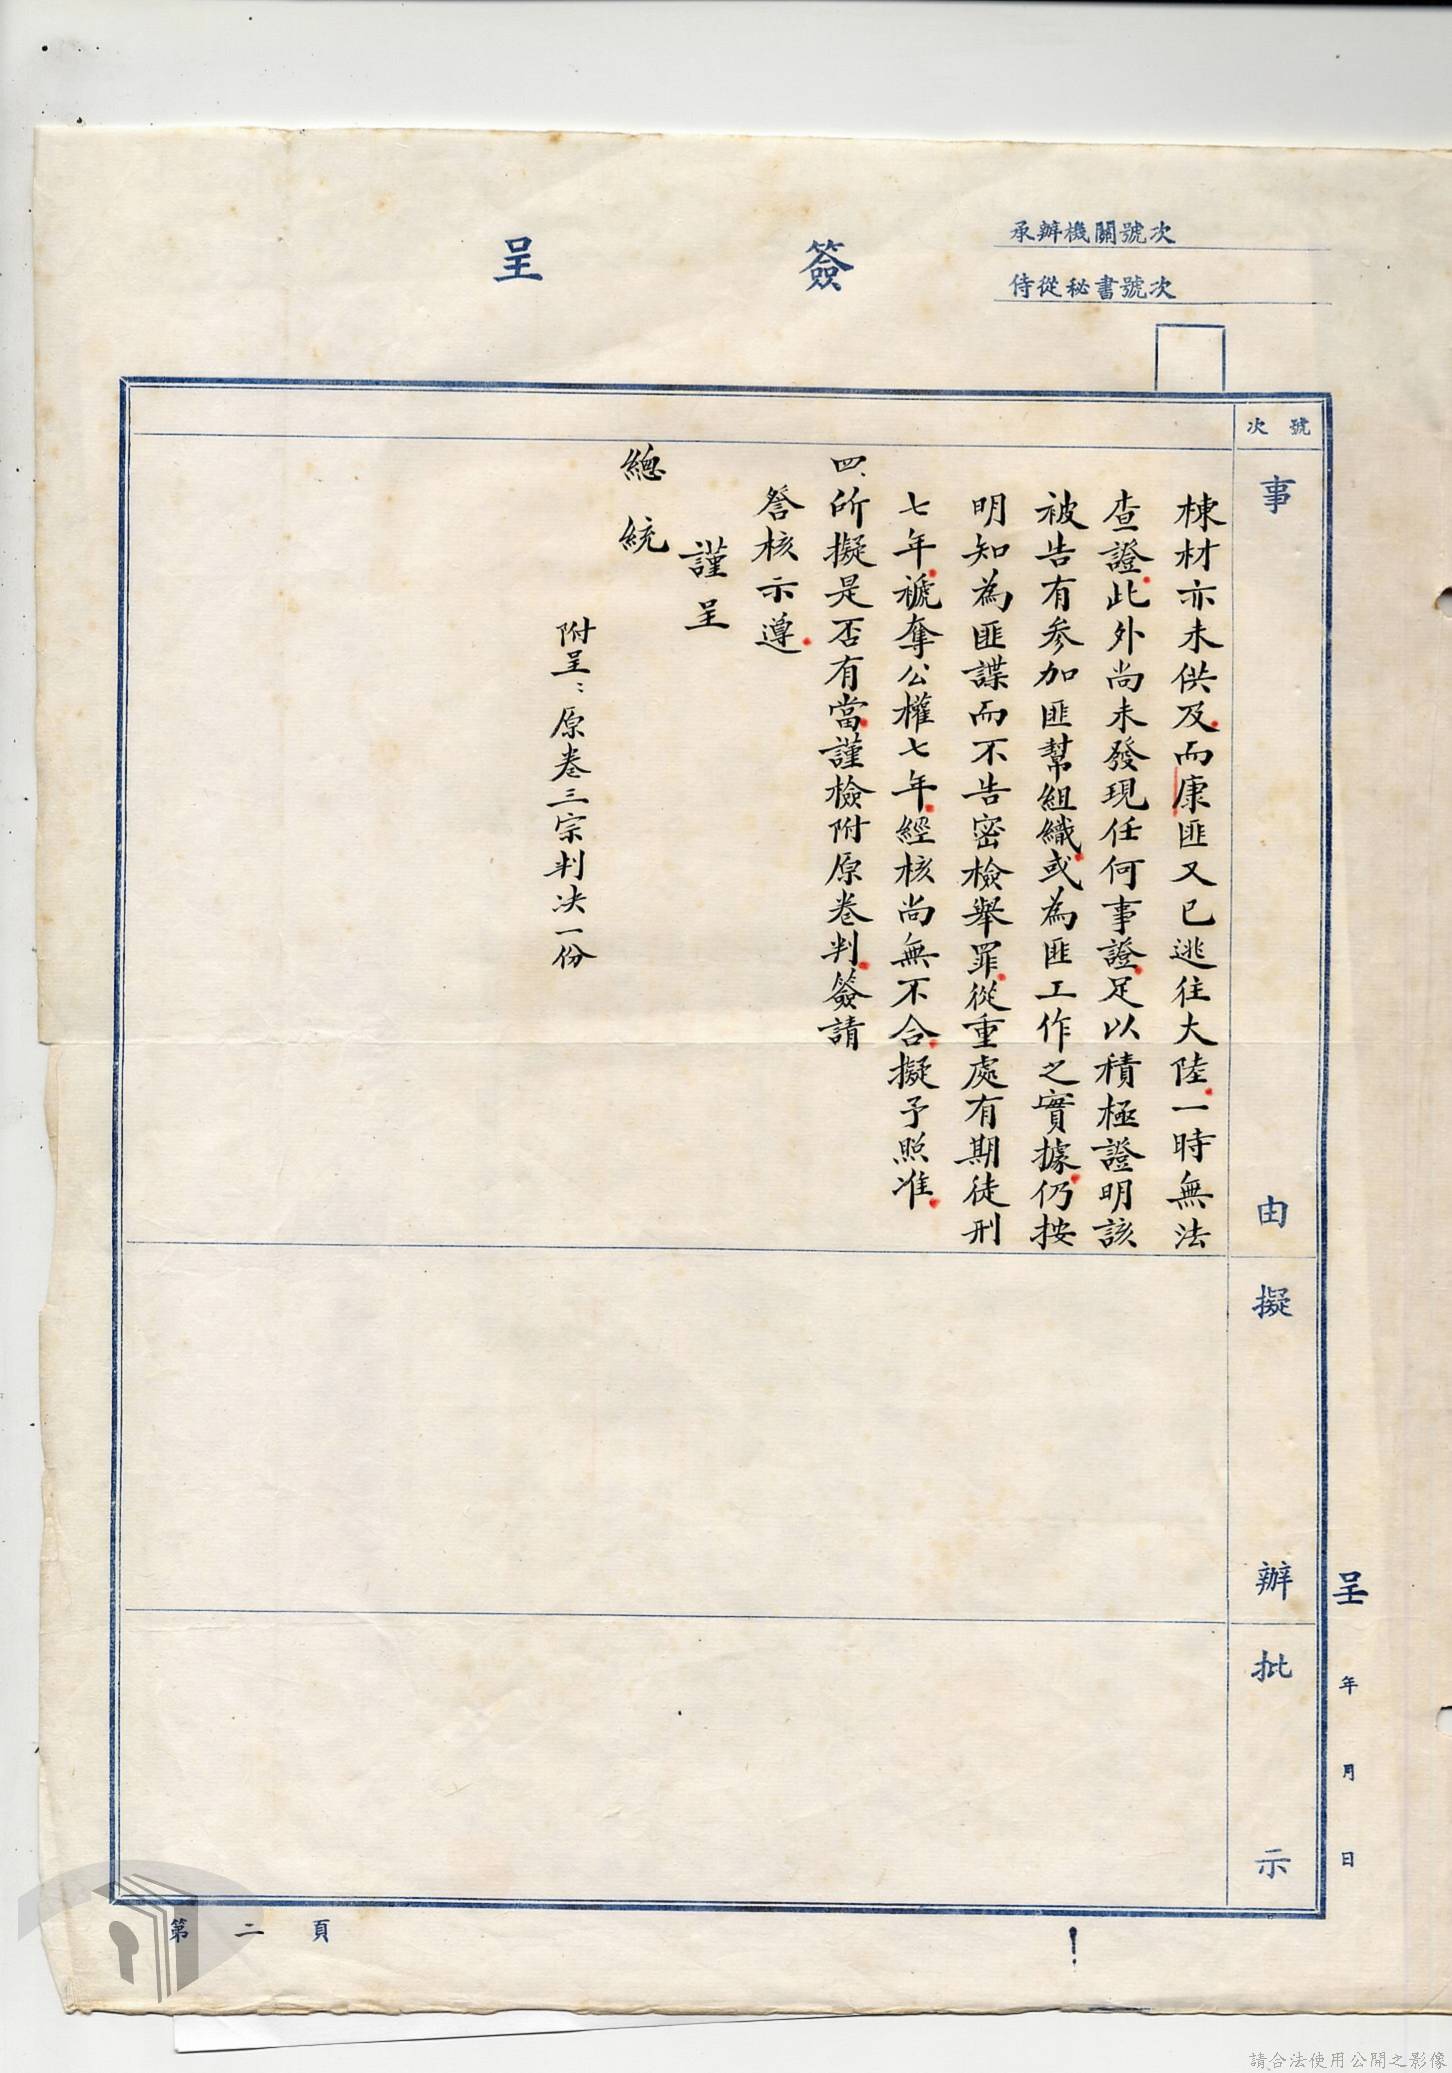 承辦機關號次
侍從秘書號次
簽呈
號次
事由
擬辦
批示
棟材亦未供及而康匪又已逃往大陸一時無法
查證此外尚未發現任何事證足以積極證明該
被告有參加匪幫組織或為匪工作之實據仍按
明知為匪諜而不告密檢舉罪從重處有期徒刑
七年褫奪公權七年經核尚無不合擬予照准
四、所擬是否有當謹檢附原卷判簽請
詧核示遵
謹呈
總統
附呈：原卷三宗判决一份
呈 年 月 日
第二頁
請合法使用公開之影像